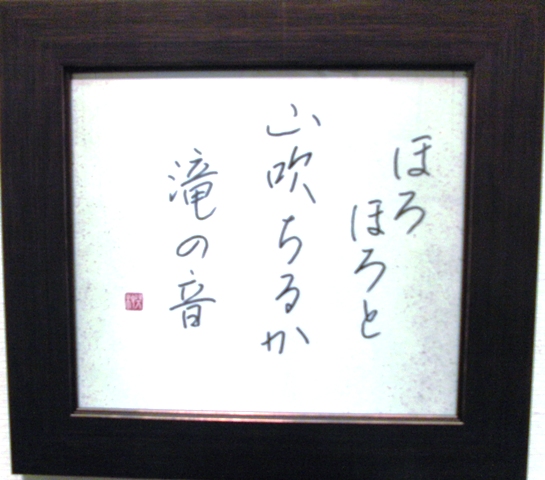 ほろ
ほろと
山吹ちるか
滝の音